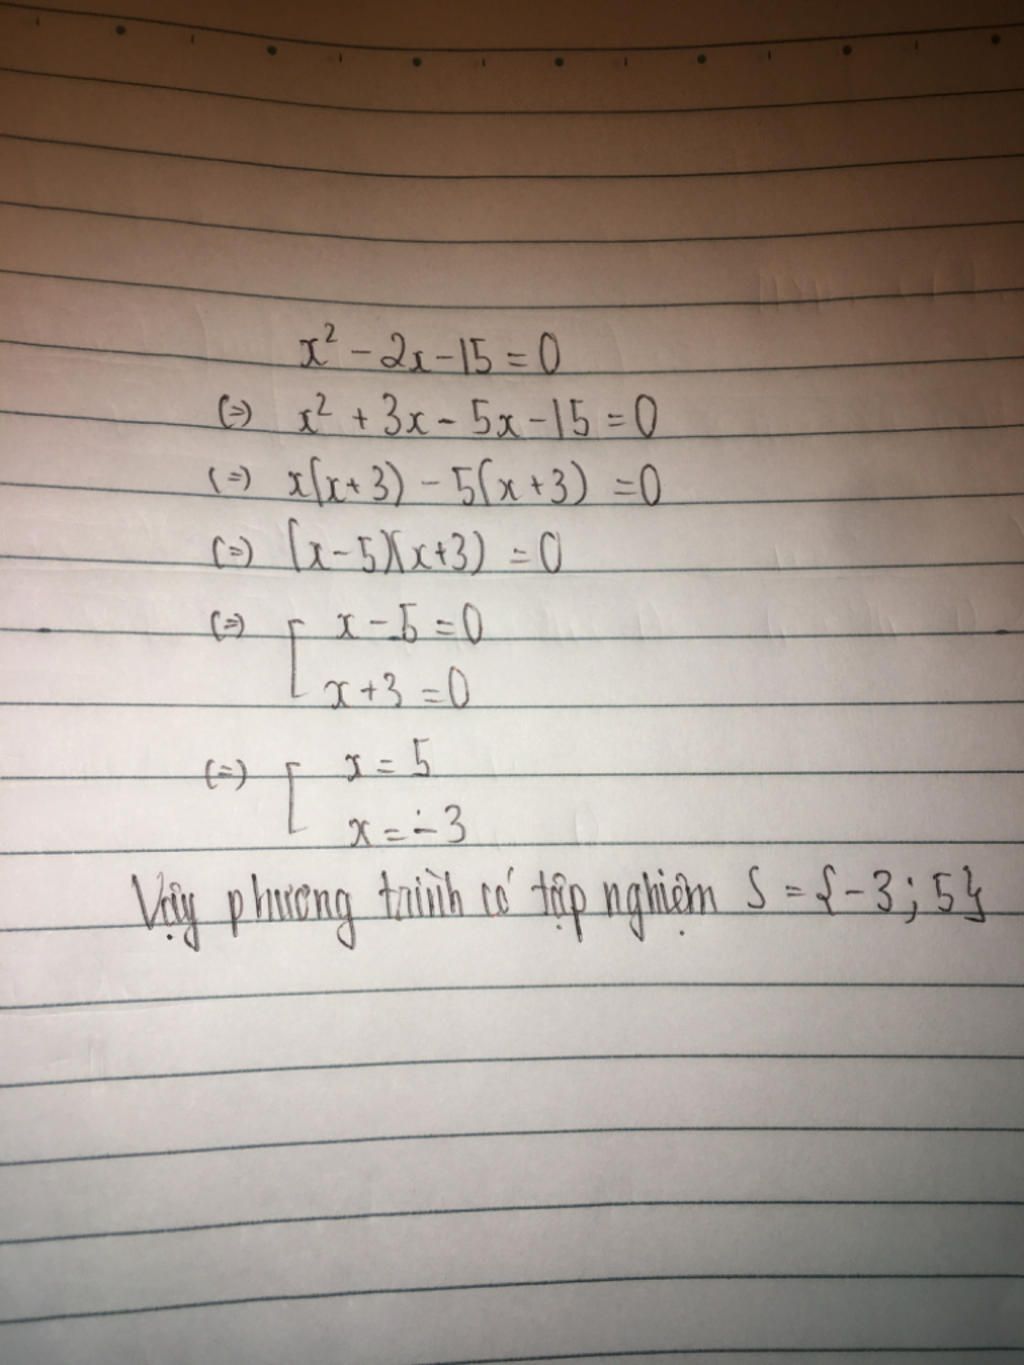 x² - 2x - 15 = 0
(=) x² + 3x - 5x - 15 = 0
(=) x(x + 3) - 5(x + 3) = 0
(=) (x - 5)(x + 3) = 0
(=) [ x - 5 = 0
x + 3 = 0
(=) [ x = 5
x = -3
Vậy phương trình có tập nghiệm S = {-3; 5}